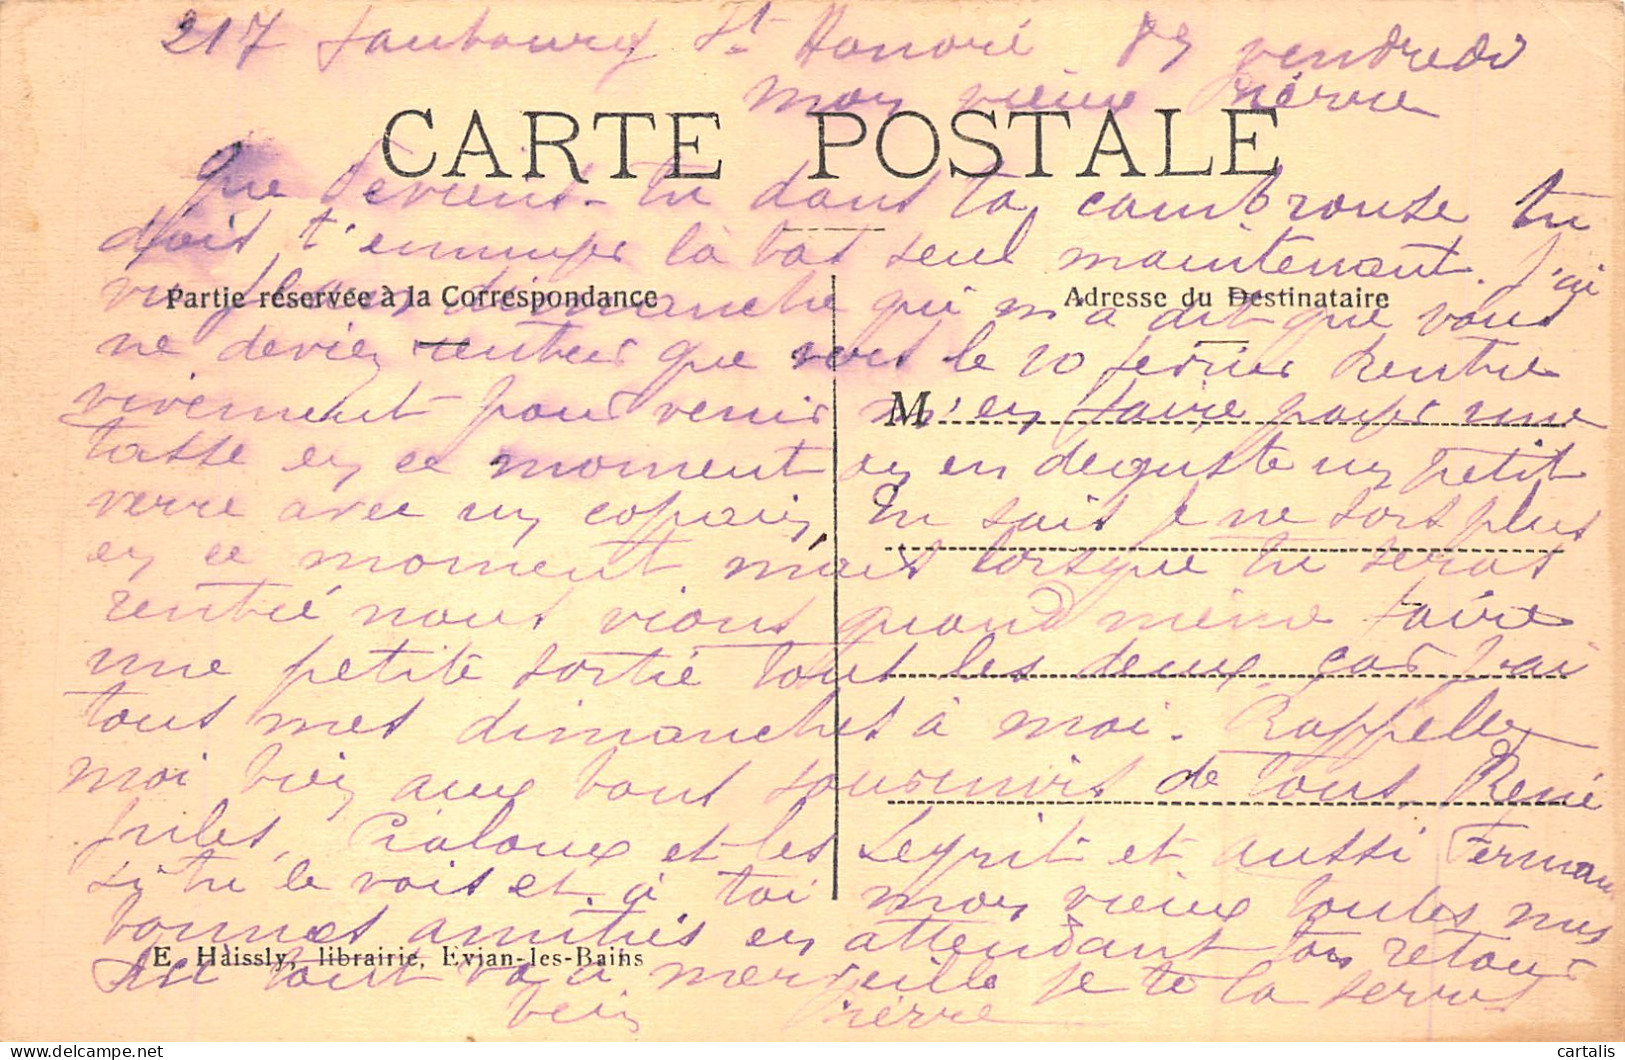 217 faubourg St Honoré 89 vendredi
mon vieux Pierre
CARTE POSTALE
Que deviens-tu dans ta cambrouse tu
dois t'ennuyer là bas seul maintenant. J'ai
vu dimanche qui m'a dit que vous
Partie réservée à la Correspondance
Adresse du Destinataire
ne deviez rentrer que vers le 20 fevrier Rentre
vivement pour venir m'en faire payer une
M
tasse en ce moment on en deguste un petit
verre avec un copain, tu sais je ne sors plus
en ce moment, mais lorsque tu seras
rentré nous irions quand même faire
une petite sortie tout les deux, car j'ai
tous mes dimanches à moi. Rappelle
moi bien aux bons souvenirs de tous, René
Jules, et les Leprit et aussi Fernan
si tu le vois et à toi mon vieux toutes mes
bonnes amitiés en attendant ton retour
E. Haissly, librairie, Evian-les-Bains
Ici tout va à merveille je te la serres
bien Pierre
cartalis